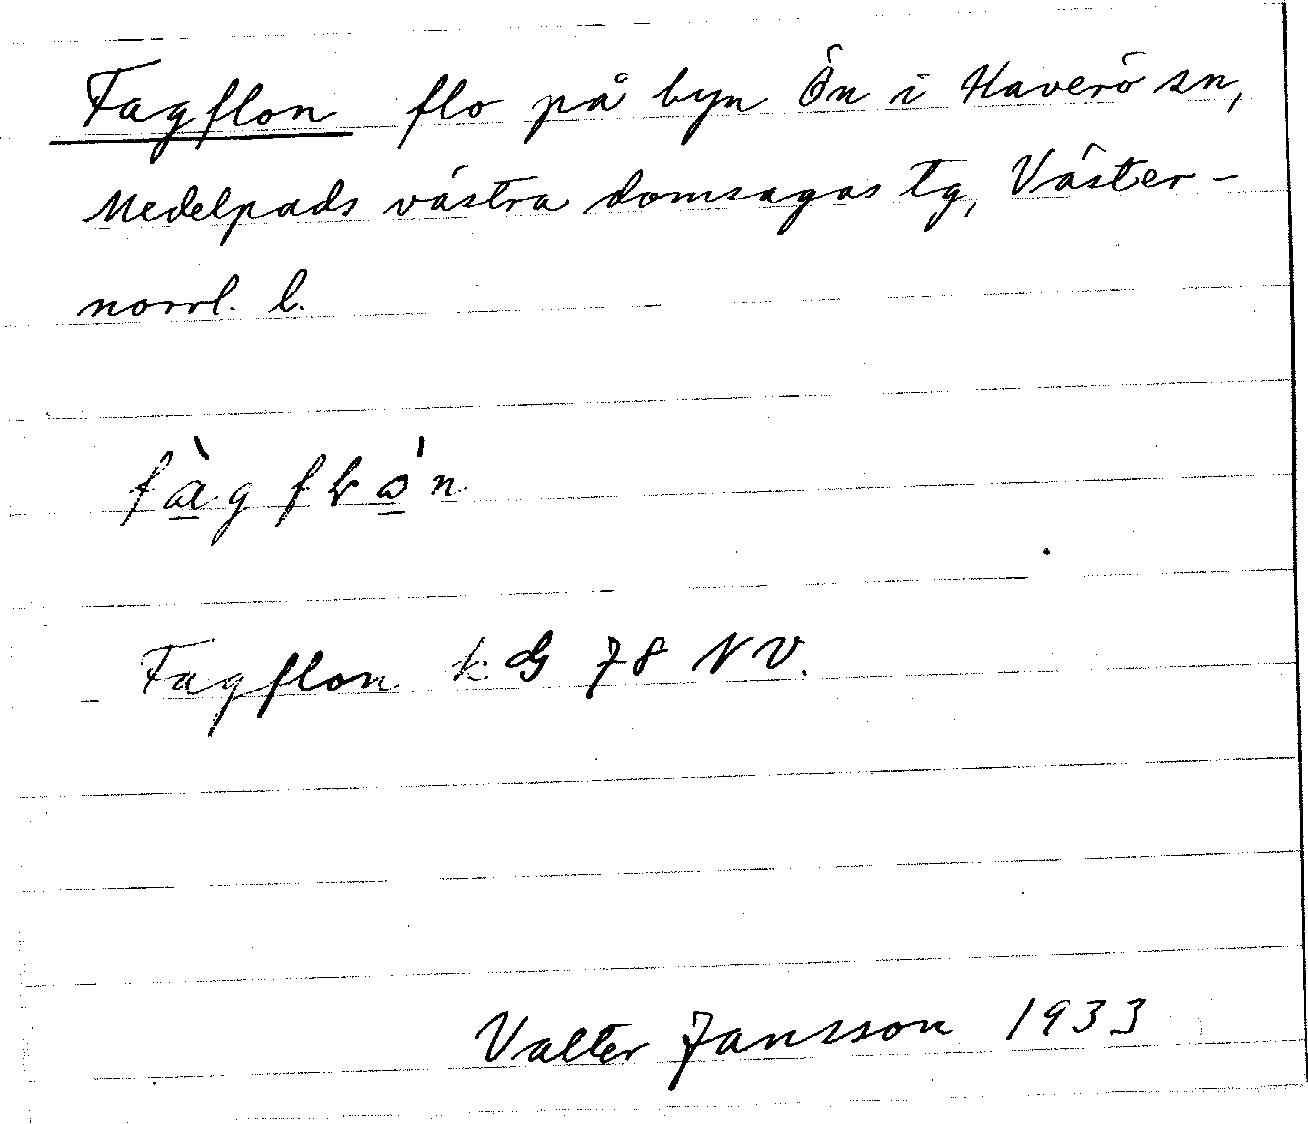 Fagflon flo på byn Ön i Haverö sn,
Medelpads västra domsagas tg, Väster-
norrl. l.
Fagflon k G 78 NV.
Valter Jansson 1933